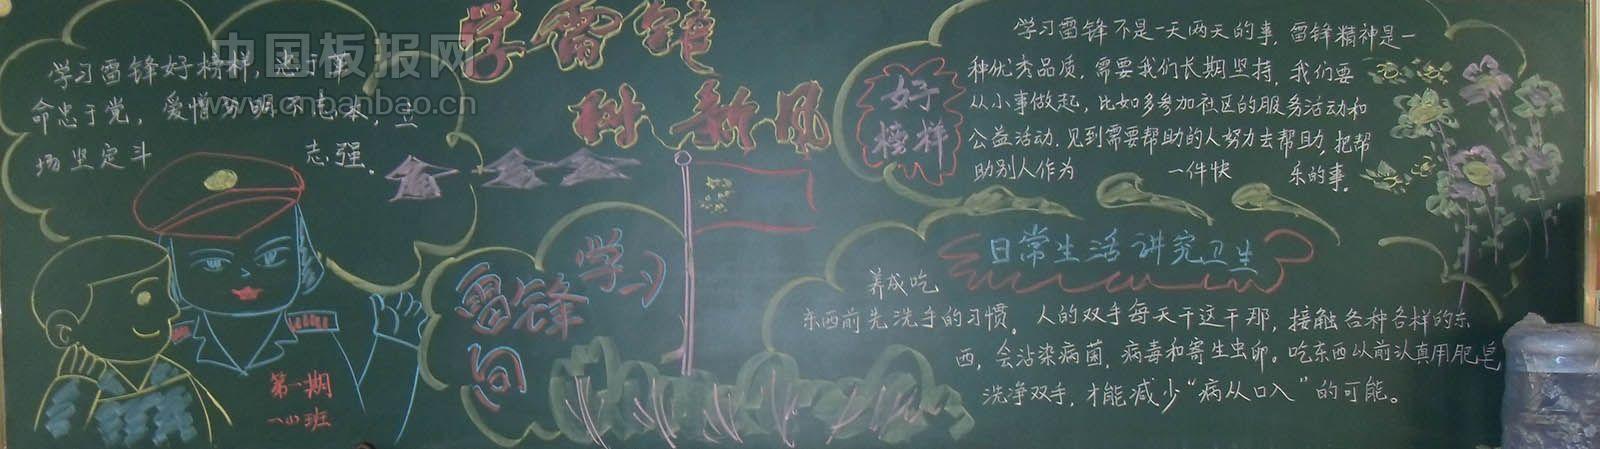 中国板报网
www.cnbanbao.cn
学习雷锋好榜样，忠于革
命忠于党，爱憎分明不忘本，立
场坚定斗 志强。
第一期
一(1)班
学雷锋
树新风
向雷锋学习
好榜样
学习雷锋不是一天两天的事，雷锋精神是一
种优秀品质，需要我们长期坚持，我们要
从小事做起，比如多参加社区的服务活动和
公益活动，见到需要帮助的人努力去帮助，把帮
助别人作为 一件快 乐的事。
日常生活讲究卫生
养成吃
东西前先洗手的习惯。人的双手每天干这干那，接触各种各样的东
西，会沾染病菌，病毒和寄生虫卵。吃东西以前认真用肥皂
洗净双手，才能减少“病从口入”的可能。